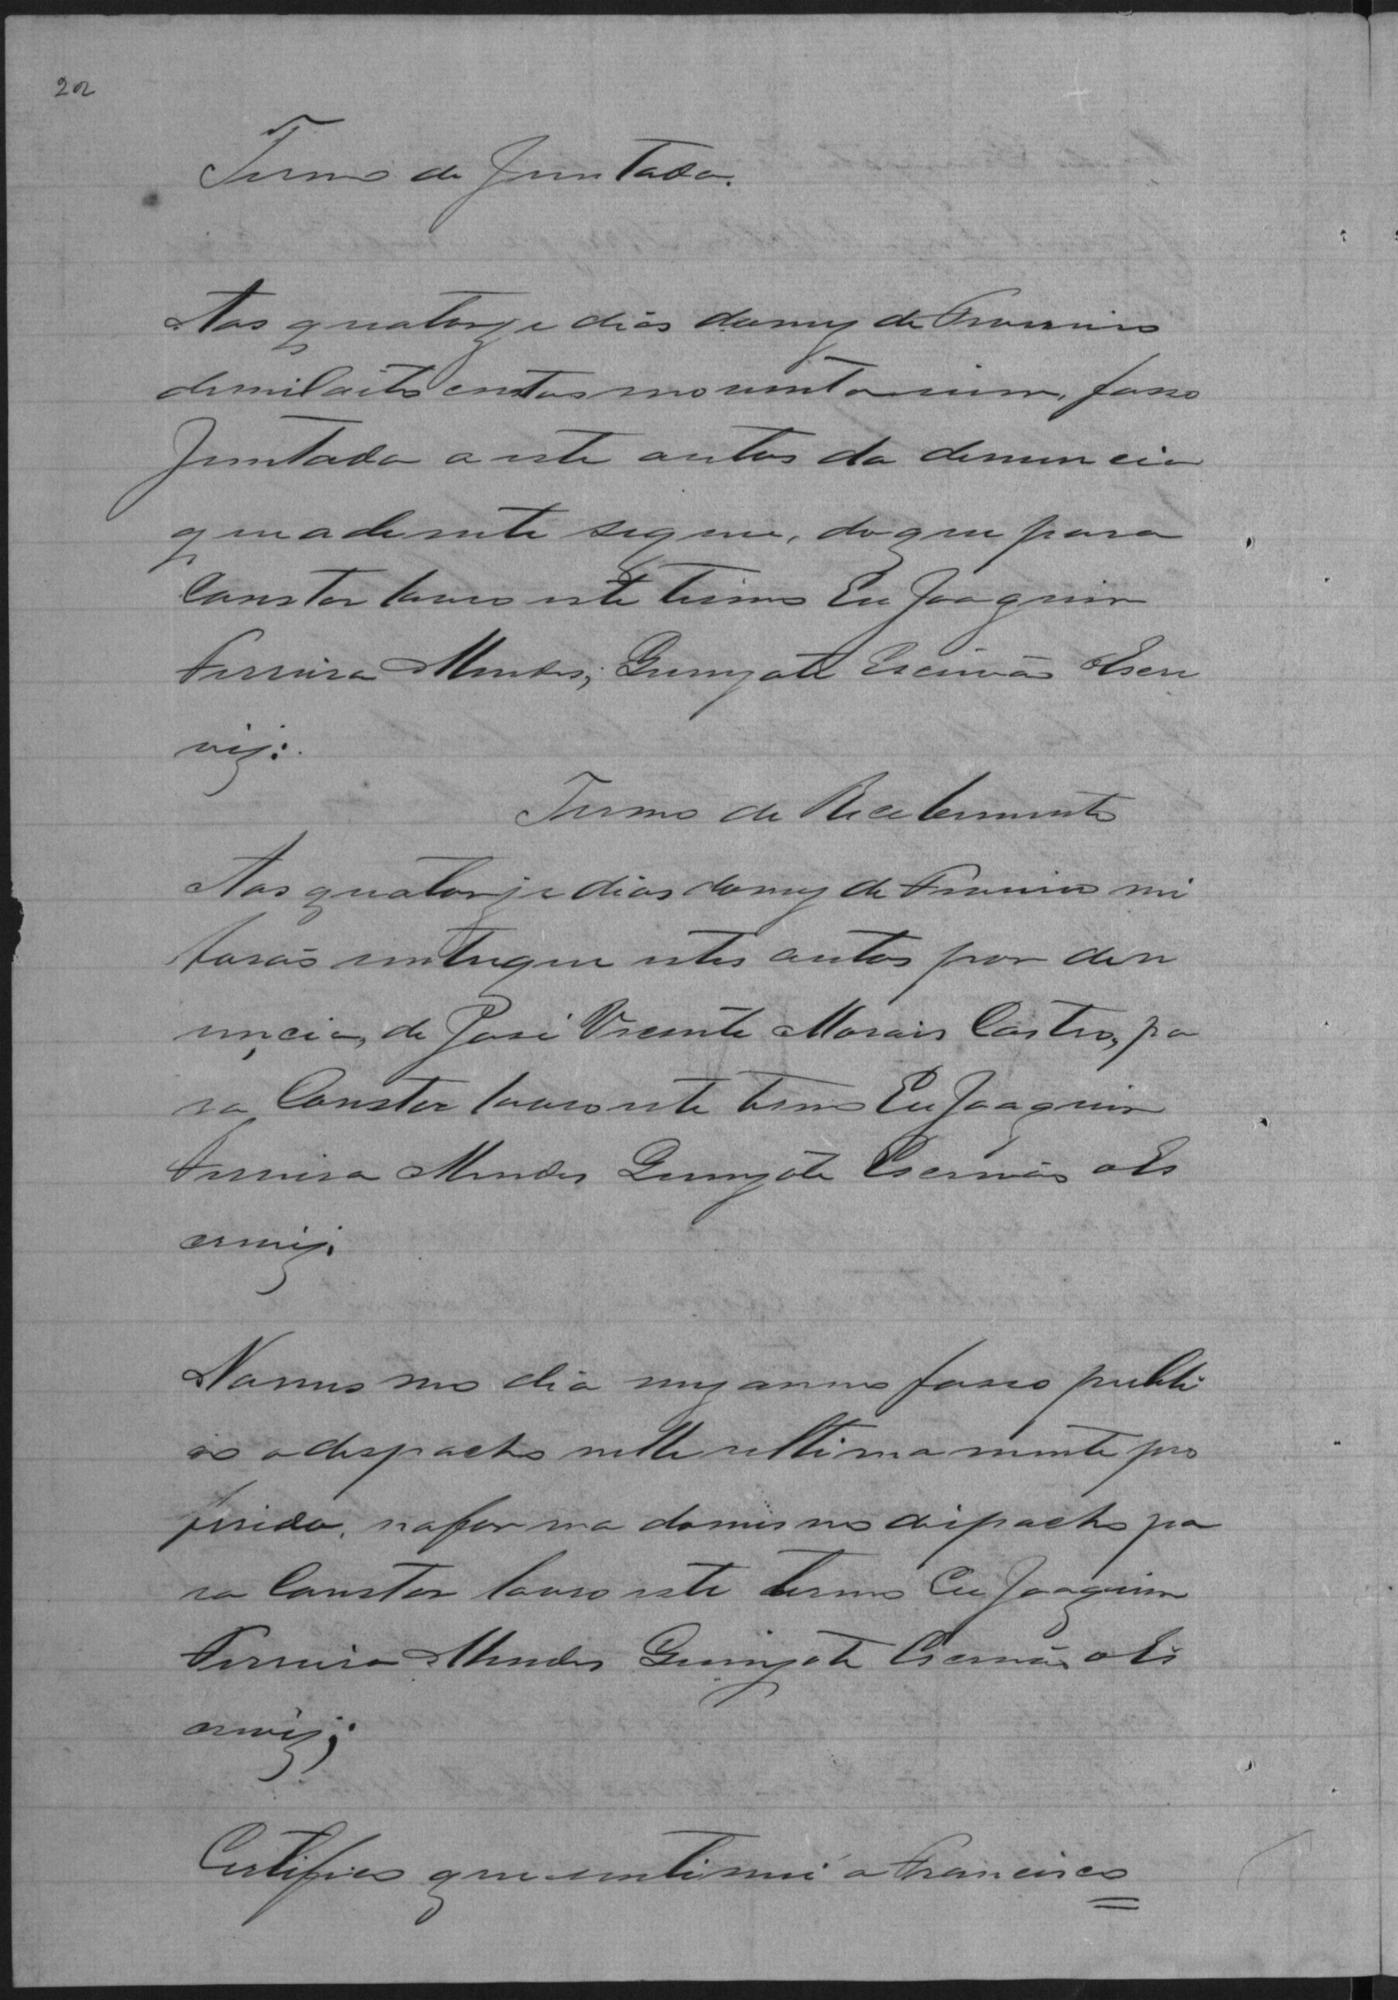 22
Termo de Juntada.
Aos quatorze dias domez de Fevereiro
demil oito centos noventa eium, fasso
Juntada a este autos da denuncia
que adeente segue, do que para
Constar lavro este termo Eu Joaquim
Ferreira Mendes, Escrivão oEscre
viz:
Termo de Recebimento
Aos quatorze dias domez de Fevereiro mi
forão entregue estes autos por den
uncia, de José Vicente Morais Castro, pa
ra Constar lavro este termo Eu Joaquim
Ferreira Mendes Escrivão oEs
creviz;
Nomesmo dia mez anno fasso publi
co odespacho nelle ultimamente pro
ferido, naforma domesmo despacho pa
ra Constar lavro este termo Eu Joaquim
Ferreira Mendes Escrivão oEs
creviz;
Certifico que entimei a Francisco